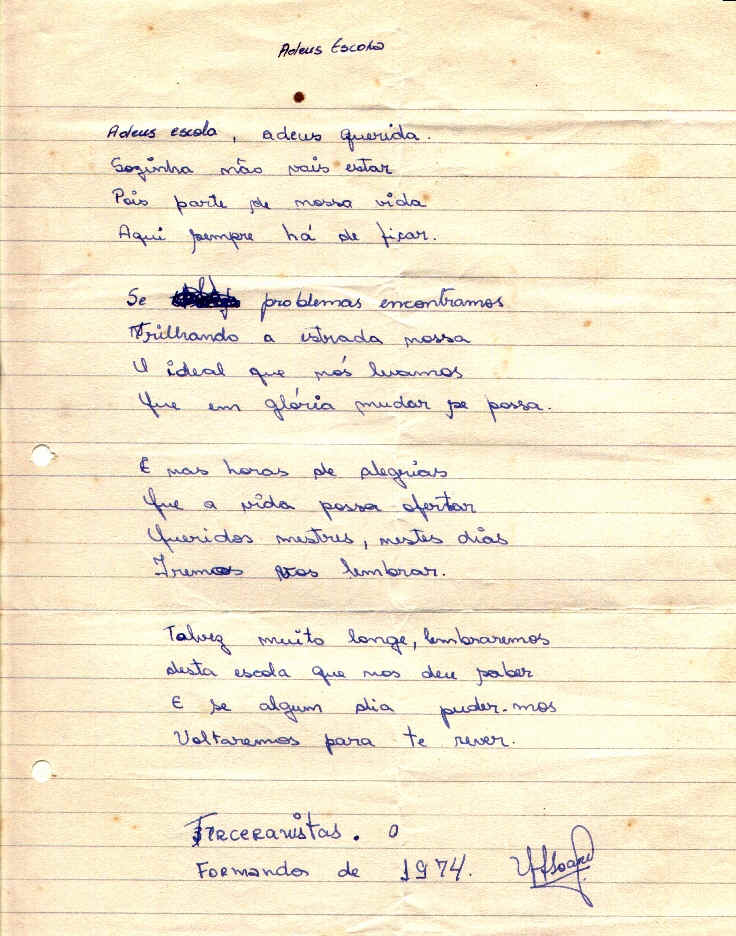 Adeus Escola
Adeus escola, adeus querida.
Sozinha não vais estar
Pois parte de nossa vida
Aqui sempre há de ficar.
Se problemas encontramos
Trilhando a estrada nossa
O ideal que nós levamos
Que em glória mudar se possa.
E nas horas de alegrias
Que a vida possa ofertar
Queridos mestres, nestes dias
Iremos vos lembrar.
Talvez muito longe, lembraremos
desta escola que nos deu saber
E se algum dia puder-mos
Voltaremos para te rever.
Terceranistas. O
Formandos de 1974.